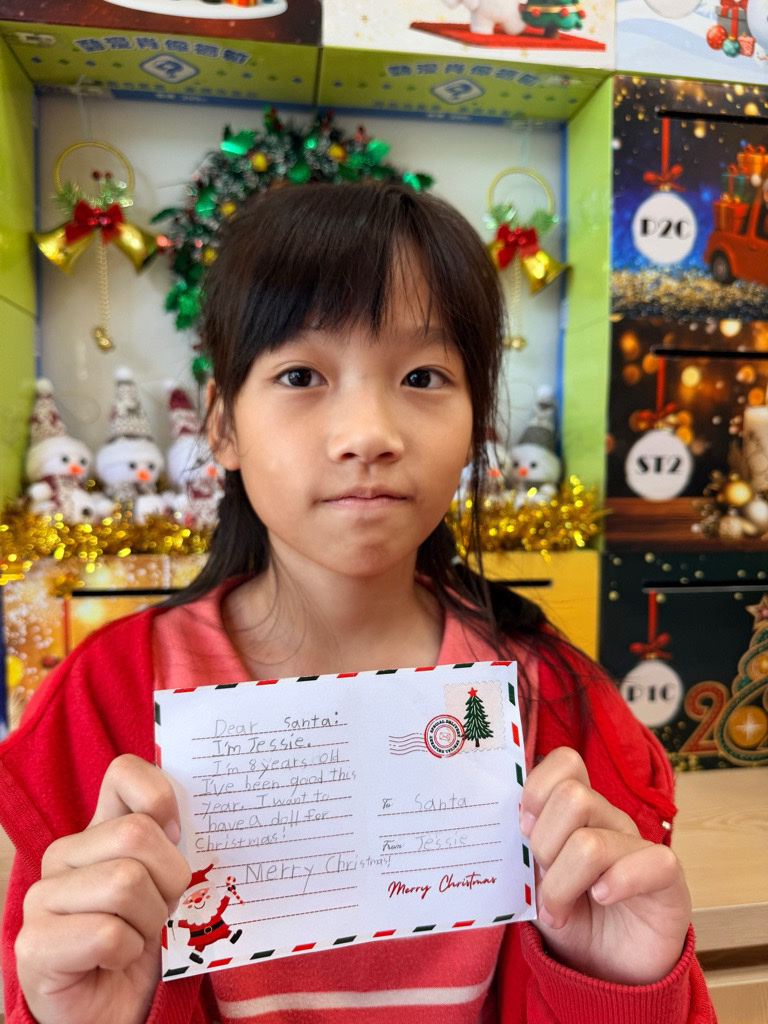 P2C
ST2
P1C
Dear Santa:
I'm Jessie.
I'm 8 years old
I've been good this
year. I want to
have a doll for
christmas!
Merry Christmas!
To Santa
From Jessie
Merry Christmas